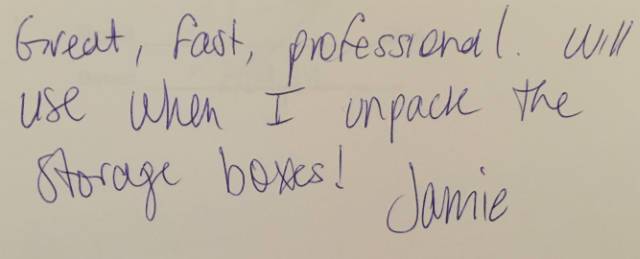 Great, fast, professional. Will
use when I unpack the
storage boxes!
Jamie